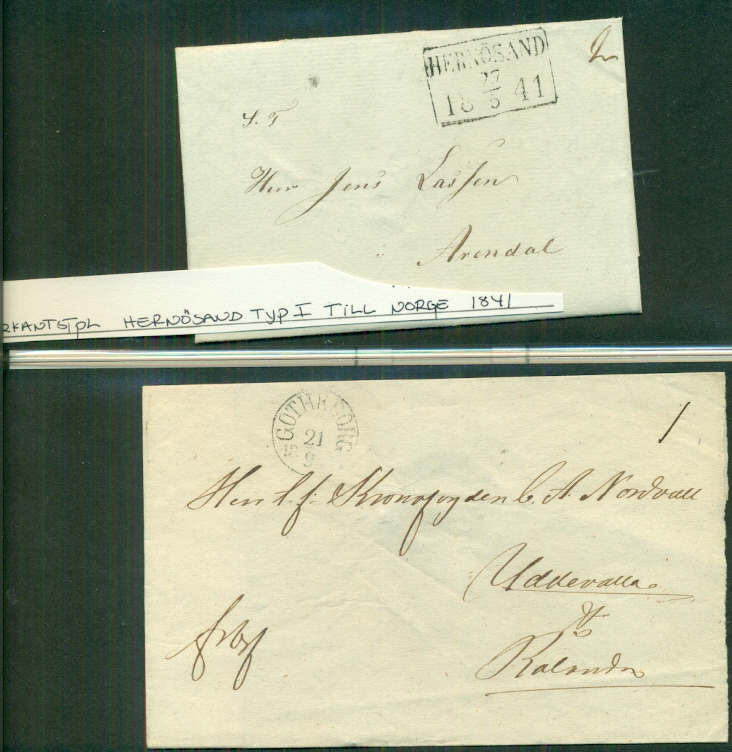 HERNÖSAND
27
18 5 41
S. T
Herr Jens Lassen
Arendal
RKANTSTPL HERNÖSAND TYP I TILL NORGE 1841
GOTHEBORG
21
1
Herr Kronofogden C. A. Nordvall
Uddevalla
Kalandra